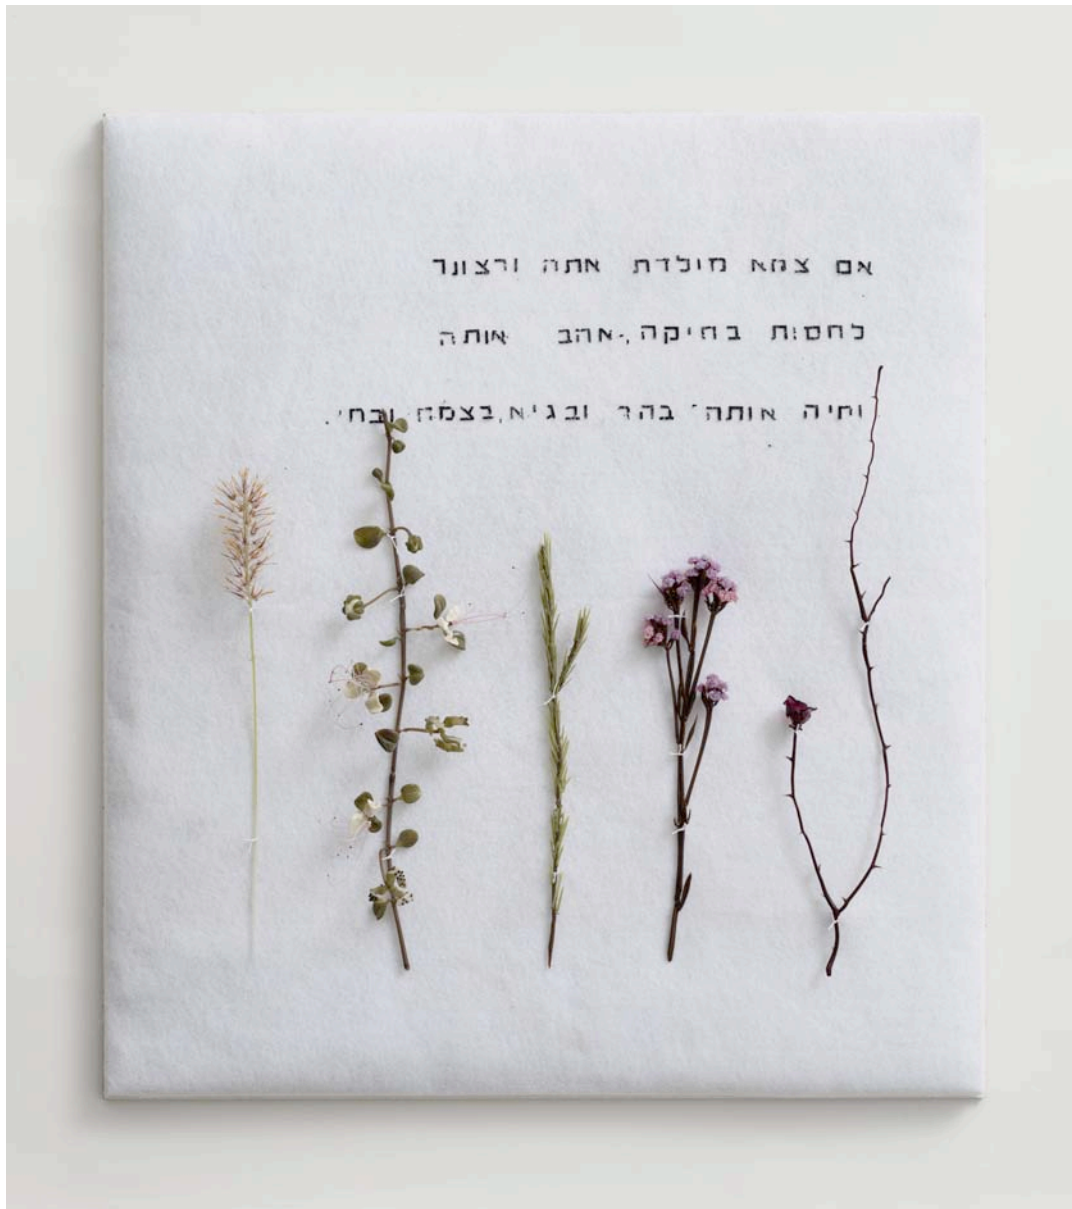 אם צמא מולדת אתה ורצונך
לחסות בחיקה, אהב אותה
וחיה אותה בהר ובגיא, בצמח ובחי.